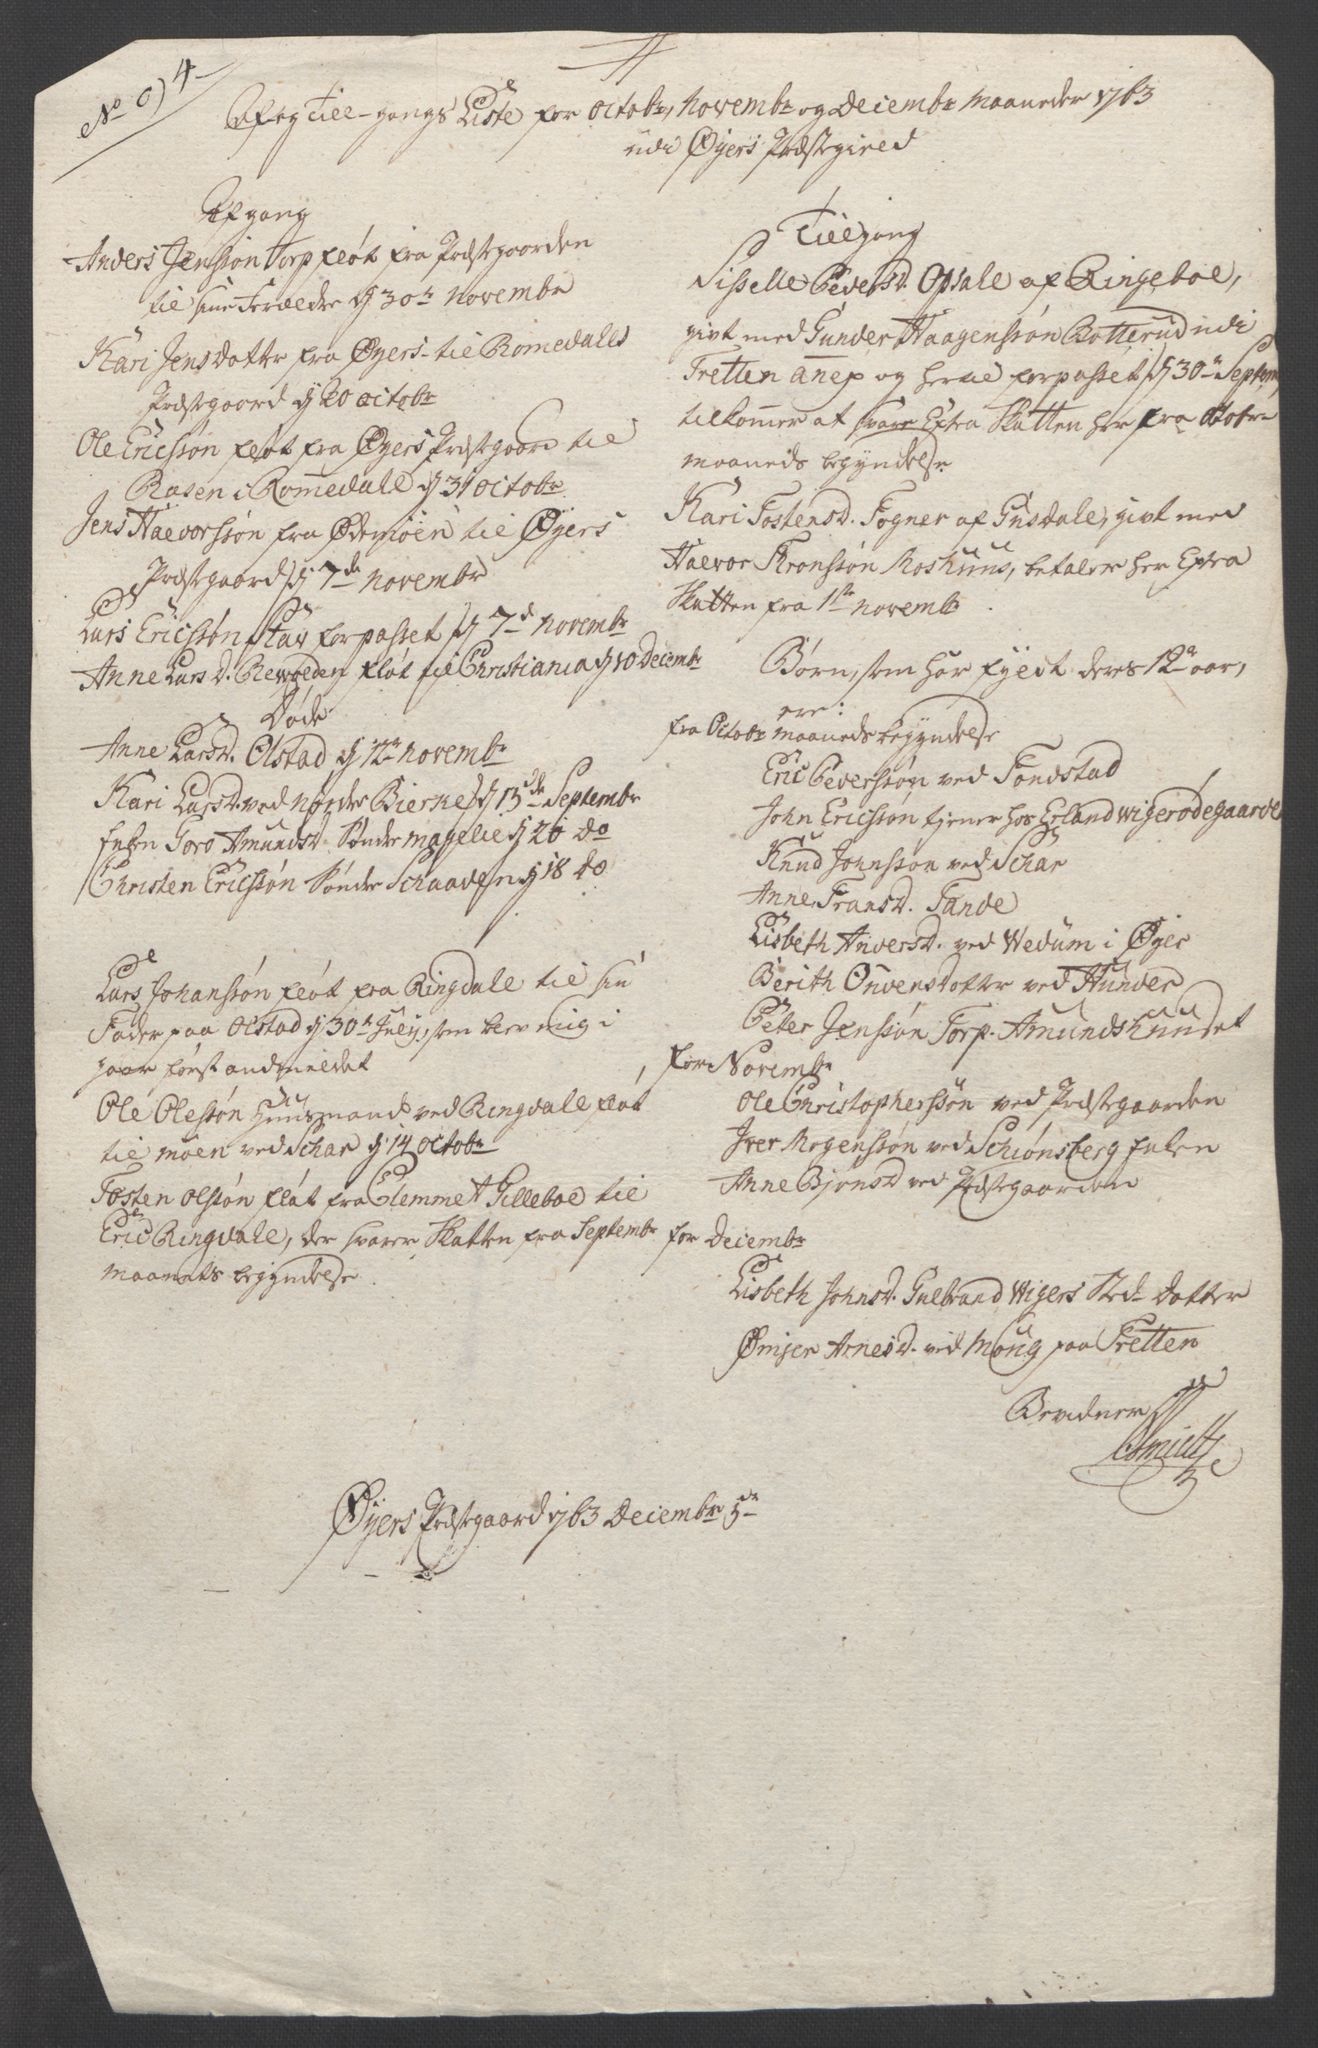 No 4
Af og Till-gangs Liste for Octobr, Novembr og Decembr Maaneder 1763
udi Øyers Præstegield
Afgang
Anders Jenssøn Torp fløt fra Præstegaarden
til sine Forældre d 30te Novembr
Kari Jensdatter fra Øyers- til Romedals
Præstegaard d 20 Octobr
Ole Ericssøn fløt fra Øyers Præstegaard til
Rasen i Rommedale d 31 Octobr
Jens Halvorssøn fra Ødemoen til Øyers
Præstegaard d 7de Novembr
Lars Ericssøn Stav forpasset d 7de Novembr
Anne Larsd. fløt til Christiania d 10 Decembr
Døde
Anne Larsd. Olstad d 12te Novembr
Kari Larsd. ved Nordre Bierke d 13de Septembr
Enken Goro Amundsd. Søndre Magelie d 26 do
Christen Ericssøn Søndre Schaaden d 18 do
Lars Johanssøn fløt fra Ringdale til sin
Fader paa Olstad d 30te July, som blev mig i
gaar først andmeldet
Ole Olessøn Huusmand ved Ringdale fløt
til Moen ved Schar d 14 Octobr
Tosten Olssøn fløt fra Clemmet Gilleboe til
Eric Ringdale, der svarer Skatten fra Septembr
Maaneds begyndelse
Tillgang
Sisselle Pedersd. Opsale af Ringeboe,
givt med Gunder Haagenssøn Rotterud udi
Tretten anex og hertil forpasset d 30te Septem
tilkommer at svare Extra Skatten her fra Octobr
maaneds begyndelse
Kari Tostensd. Fogner af Gusdale, givt med
Halvor Tronssøn Moshuus, betaler her Extra
Skatten fra 1te Novemb
Børn, som har fyldt deres 12te aar,
ere:
fra Octobr maaneds begyndelse
Eric Pederssøn ved Fonstad
John Ericssøn tjener hos Erland Wigerødegaarde
Knud Johnssøn ved Schar
Anne Fransd. Tande
Lisbeth Andersd. ved Wedum i Øyer
Berith Engvensdotter ved Hunder
Peter Jenssøn Torp-Amundshuuset
for Novembr
Ole Christopherssøn ved Præstegaarden
Iver Mogenssøn ved Schiønsberg Enken
Anne Bjønsd. ved Præstegaarden
for Decembr
Lisbeth Johnsd. Gulbrand Wigers Sted-Datter
Ømjer Arnesd. ved Moug paa Tretten
Bevidner
Smith
Øyers Præstegaard 1763 Decembr 5te